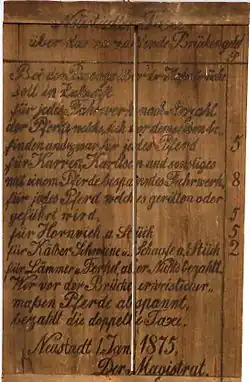 Neustadter Taxe
über das zu zahlende Brückengeld
Bei dem Passiren der Brücke
soll in Zukunft
für jedes Fahrwerk nach Anzahl
der Pferde welche sich vor demselben be-
finden und zwar für jedes Pferd 5
für Karren, und sonstiges
mit einem Pferde bespanntes Fahrwerk, 8
für jedes Pferd welches geritten oder
geführt wird, 5
für Hornvieh a Stück 5
für Kälber Schweine u. Schaafe a Stück 2
für Lämmer u. Ferkel aber Nichts bezahlt.
Wer vor der Brücke
maßen Pferde abspannt,
bezahlt die doppelte Taxe.
Neustadt 1. Jan. 1875.
Der Magistrat.